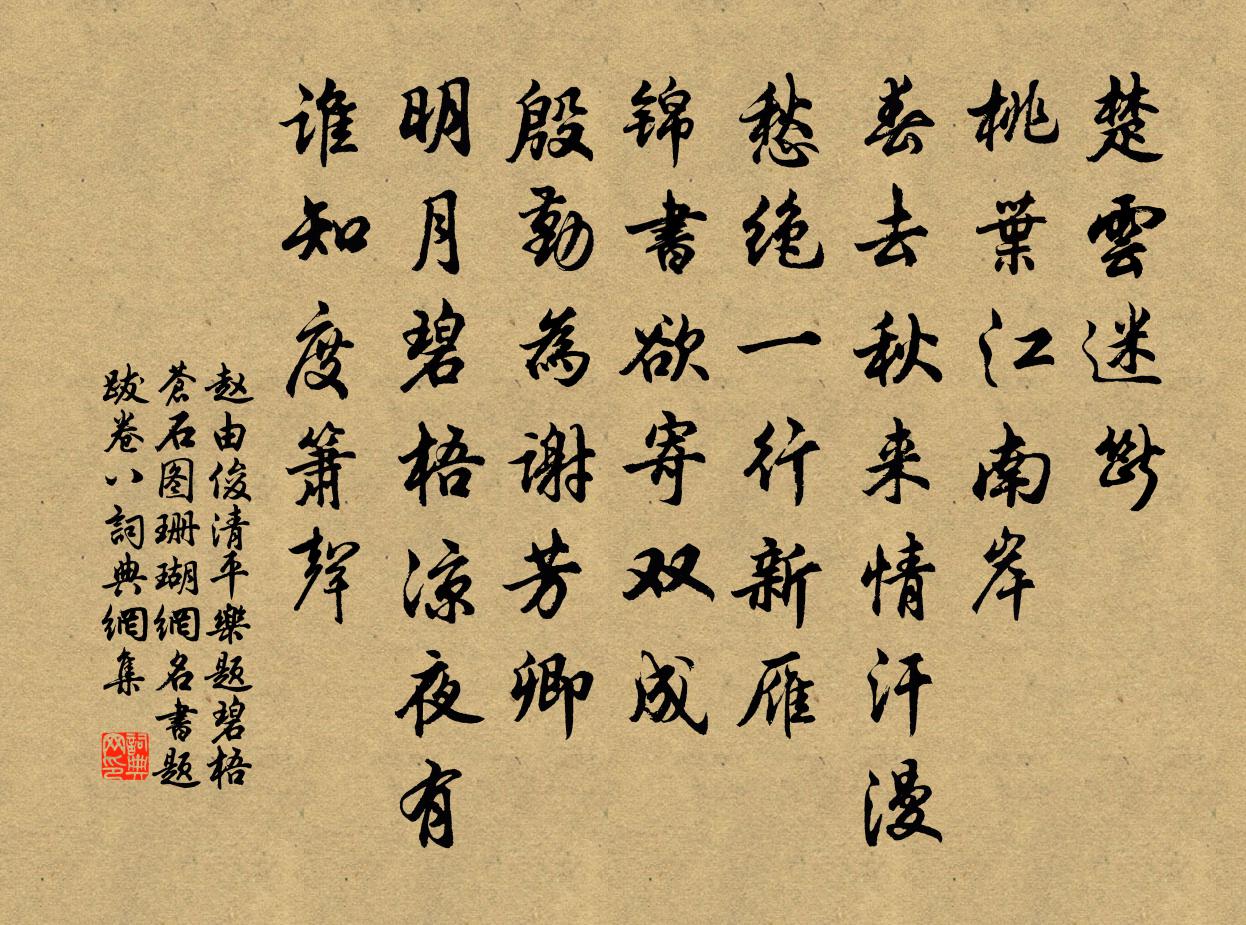 楚雲迷斷
桃葉江南岸
春去秋来情汗漫
愁绝一行新雁
锦書欲寄双成
殷勤為謝芳卿
明月碧梧凉夜有
谁知度箫聲
赵由俊清平樂题碧梧
蒼石图珊瑚網名書题
跋卷八詞典網集
詞典网印